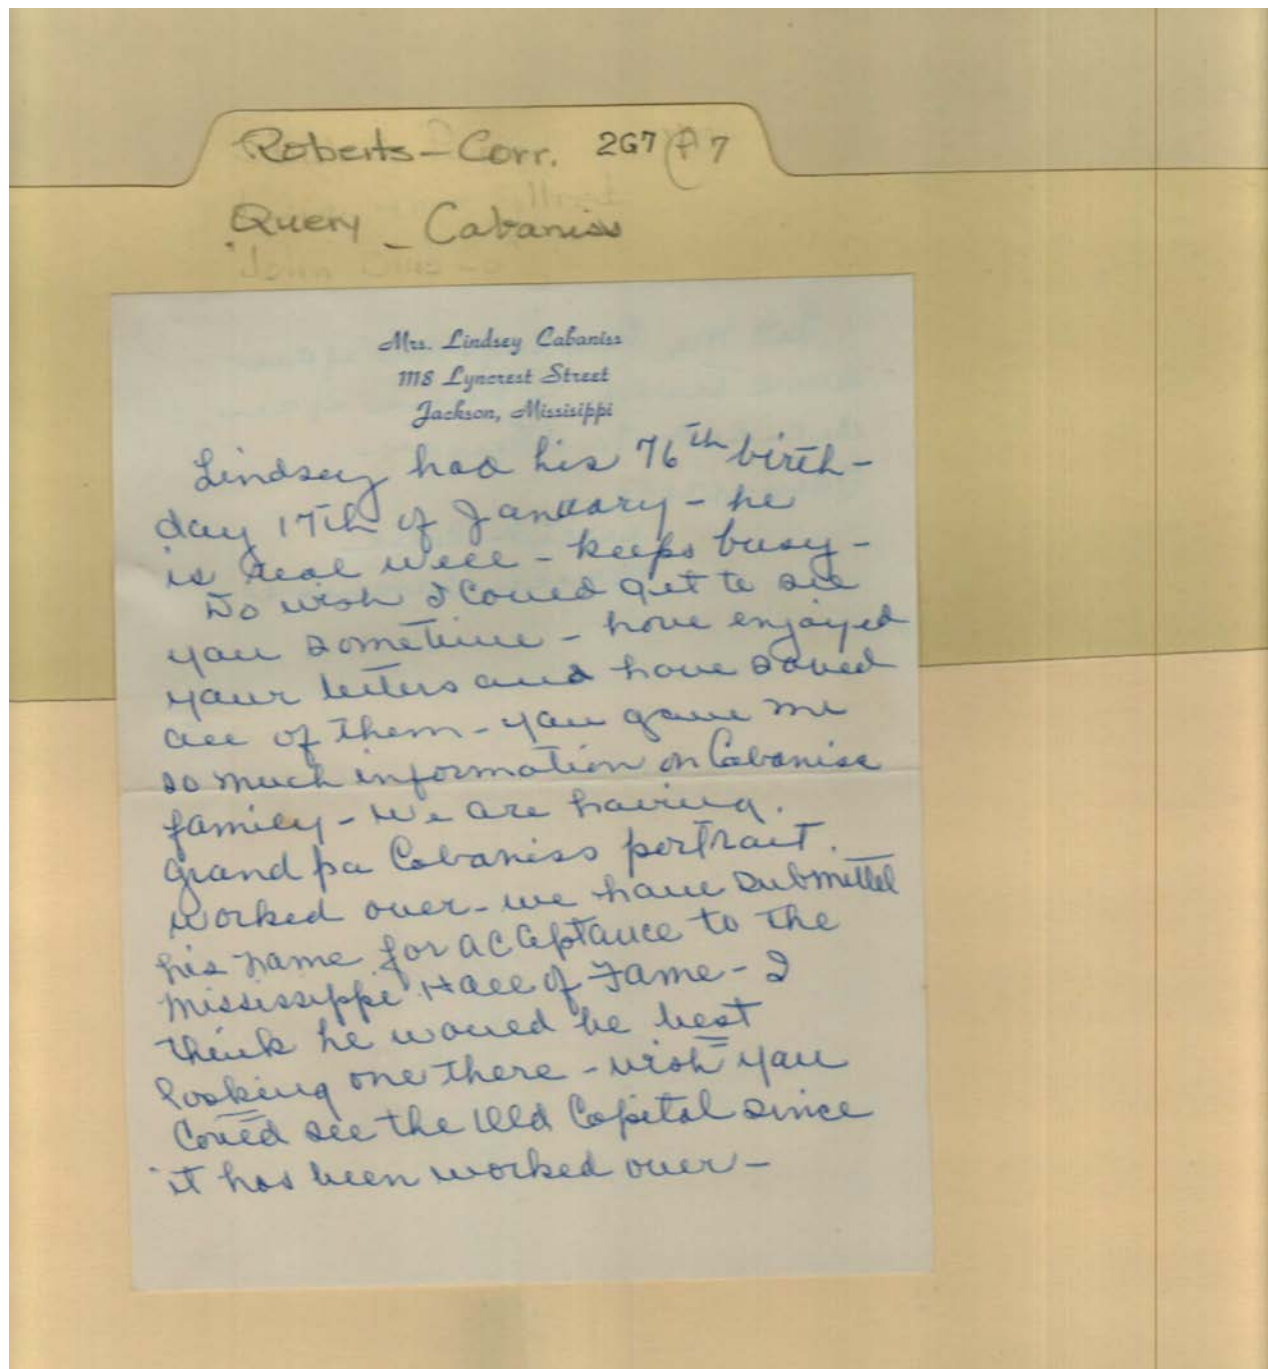 Roberts - Corr. 2G7 F7
Query - Cabaniss
Mrs. Lindsey Cabaniss
1118 Lyncrest Street
Jackson, Missisippi
Lindsey had his 76th birth-
day 17th of January - he
is real well - keeps busy -
Do wish I could get to see
you sometime - have enjoyed
your letters and have saved
all of them - you gave me
so much information on Cabaniss
family - We are having
grand pa Cabaniss portrait
worked over - we have submitted
his name for acceptance to the
Mississippi Hall of Fame - I
think he would be best
looking one there - wish you
could see the Old Capital since
it has been worked over -